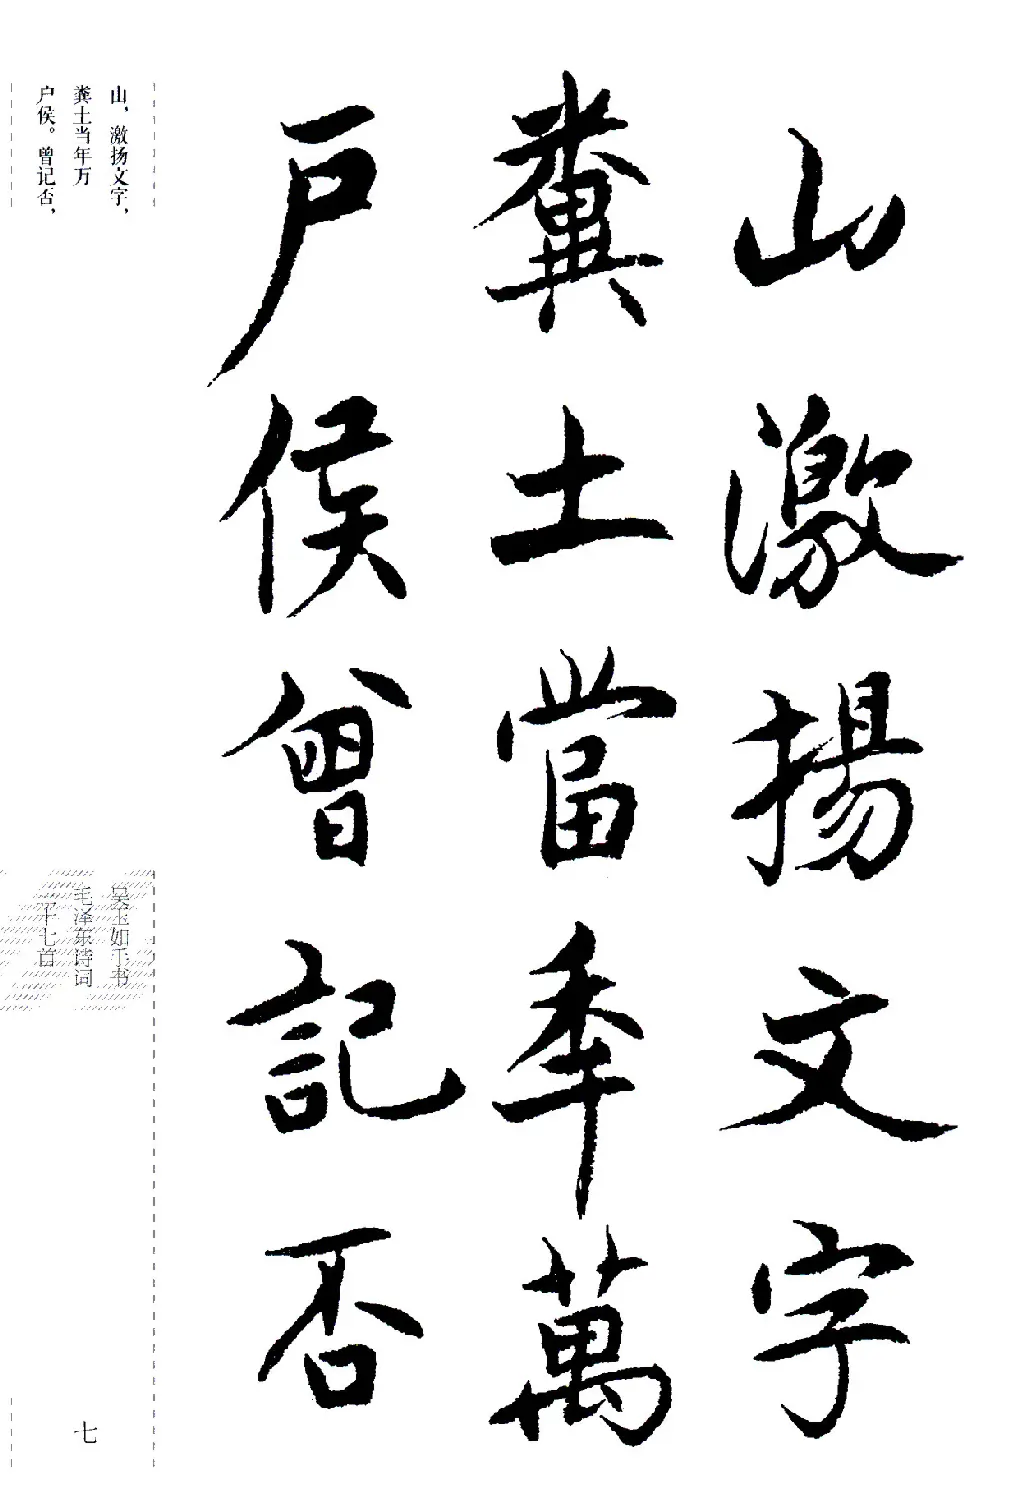 山激揚文字
糞土當年萬
戶侯曾記否
山，激扬文字，
粪土当年万
户侯。曾记否，
吴玉如手书
毛泽东诗词
二十七首
七